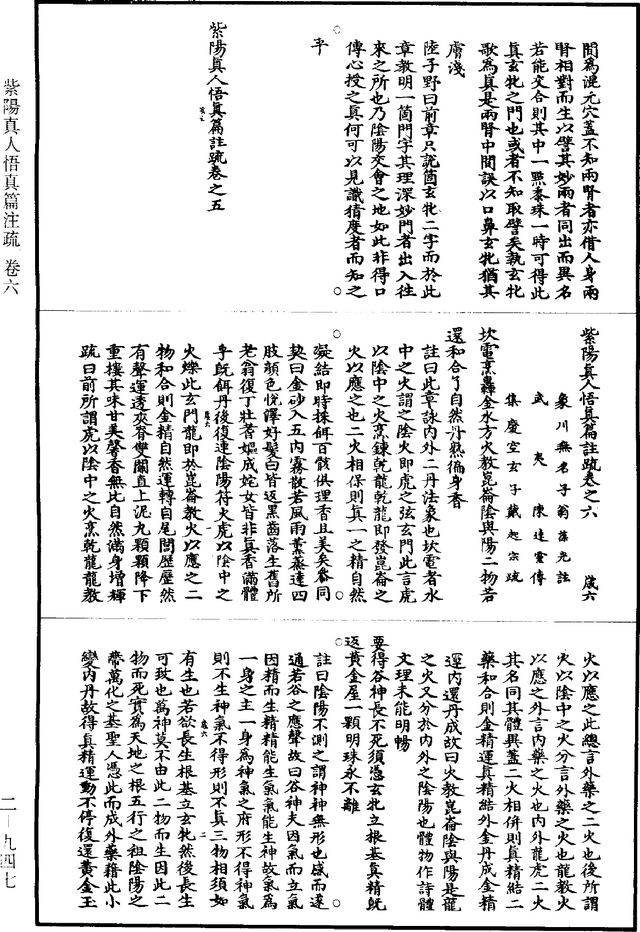 紫陽真人悟真篇注疏 卷六
二—九四七
間為混元穴蓋不知兩腎者亦借人身兩
腎相對而生以譬其妙兩者同出而異名
若能交合則其中一點黍珠一時可得此
真玄牝之門也或者不知取譬矣執玄牝
歌為真是兩腎中間訣以口鼻玄牝猶其
膚淺
陸子野曰前章只說箇玄牝二字而於此
章教明一箇門字其理深妙門者出入往
來之所也乃陰陽交會之地如此非得口
傳心授之真何可以見識猜度者而知之
乎
紫陽真人悟真篇註疏卷之五
紫陽真人悟真篇註疏卷之六 歲六
象川無名子翁葆光註
武夷陳達靈傳
集慶空玄子戴起宗疏
坎電烹轟金水方火教崑崙陰與陽二物若
還和合了自然丹熟徧身香
註曰此章詠內外二丹法象也坎電者水
中之火謂之陰火即虎之弦玄門此言虎
以陰中之火烹鍊乾龍乾龍即發崑崙之
火以應之也二火相保則真一之精自然
凝結即時採餌百骸俱理香且美矣參同
契曰金砂入五內霧散若風雨薰蒸達四
肢顏色悅澤好髮白皆返黑齒落生舊所
老翁復丁壯耆嫗成姹女皆非真香滿體
乎既餌丹後復運陰陽符火虎以陰中之
火爍此玄門龍即於崑崙教火以應之二
物和合則金精自然運轉自尾閭歷歷然
有聲運透夾脊雙關直上泥丸顆顆降下
重樓其味甘美馨香無比自然滿身增輝
疏曰前所謂虎以陰中之火烹乾龍龍教
火以應之此總言外藥之二火也後所謂
火以陰中之火分言外藥之火也龍教火
以應之外言內藥之火也內外龍虎二火
其名同其體異蓋二火相併則真精結二
藥和合則金精運真精結外金丹成金精
運內還丹成故曰火教崑崙陰與陽是龍
之火又分於內外之陰陽也體物作詩體
文理未能明暢
要得谷神長不死須憑玄牝立根基真精既
返黃金屋一顆明珠永不離
註曰陰陽不測之謂神神無形也感而遂
通若谷之應聲故曰谷神夫因氣而立氣
因精而生精能生氣氣能生神故氣為
一身之主一身為神氣之府形不得神氣
則不生神氣不得形則不真三物相須如
有生也若欲長生根基立玄牝然後長生
可致也萬神莫不由此二物而生因此二
物而死實為天地之根五行之祖陰陽之
帶萬化之基聖人憑此而成外藥藉此小
變內丹故得真精運動不停復還黃金玉